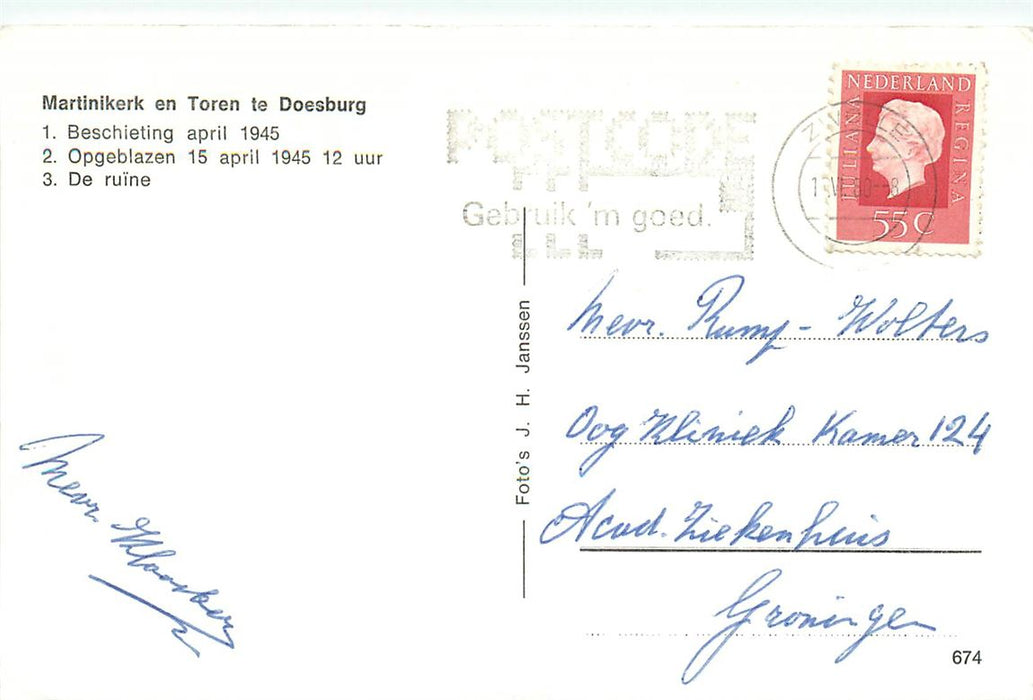 Martinikerk en Toren te Doesburg
1. Beschieting april 1945
2. Opgeblazen 15 april 1945 12 uur
3. De ruïne
POSTCODE
Gebruik 'm goed.
NEDERLAND
JULIANA
REGINA
55 C
Foto's J. H. Janssen
Mevr. Rump - Wolters
Oog Kliniek Kamer 124
Acad. Ziekenhuis
Groningen
Mevr.
674